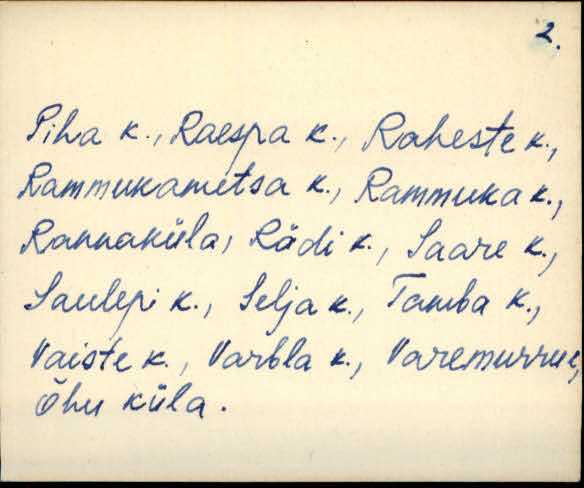 2.
Piha k., Raespa k., Raheste k.,
Rammukametsa k., Rammuka k.,
Rannaküla, Rädi k., Saare k.,
Saulepi k., Selja k., Tamba k.,
Vaiste k., Varbla k., Varemurru k.,
Õhu küla.